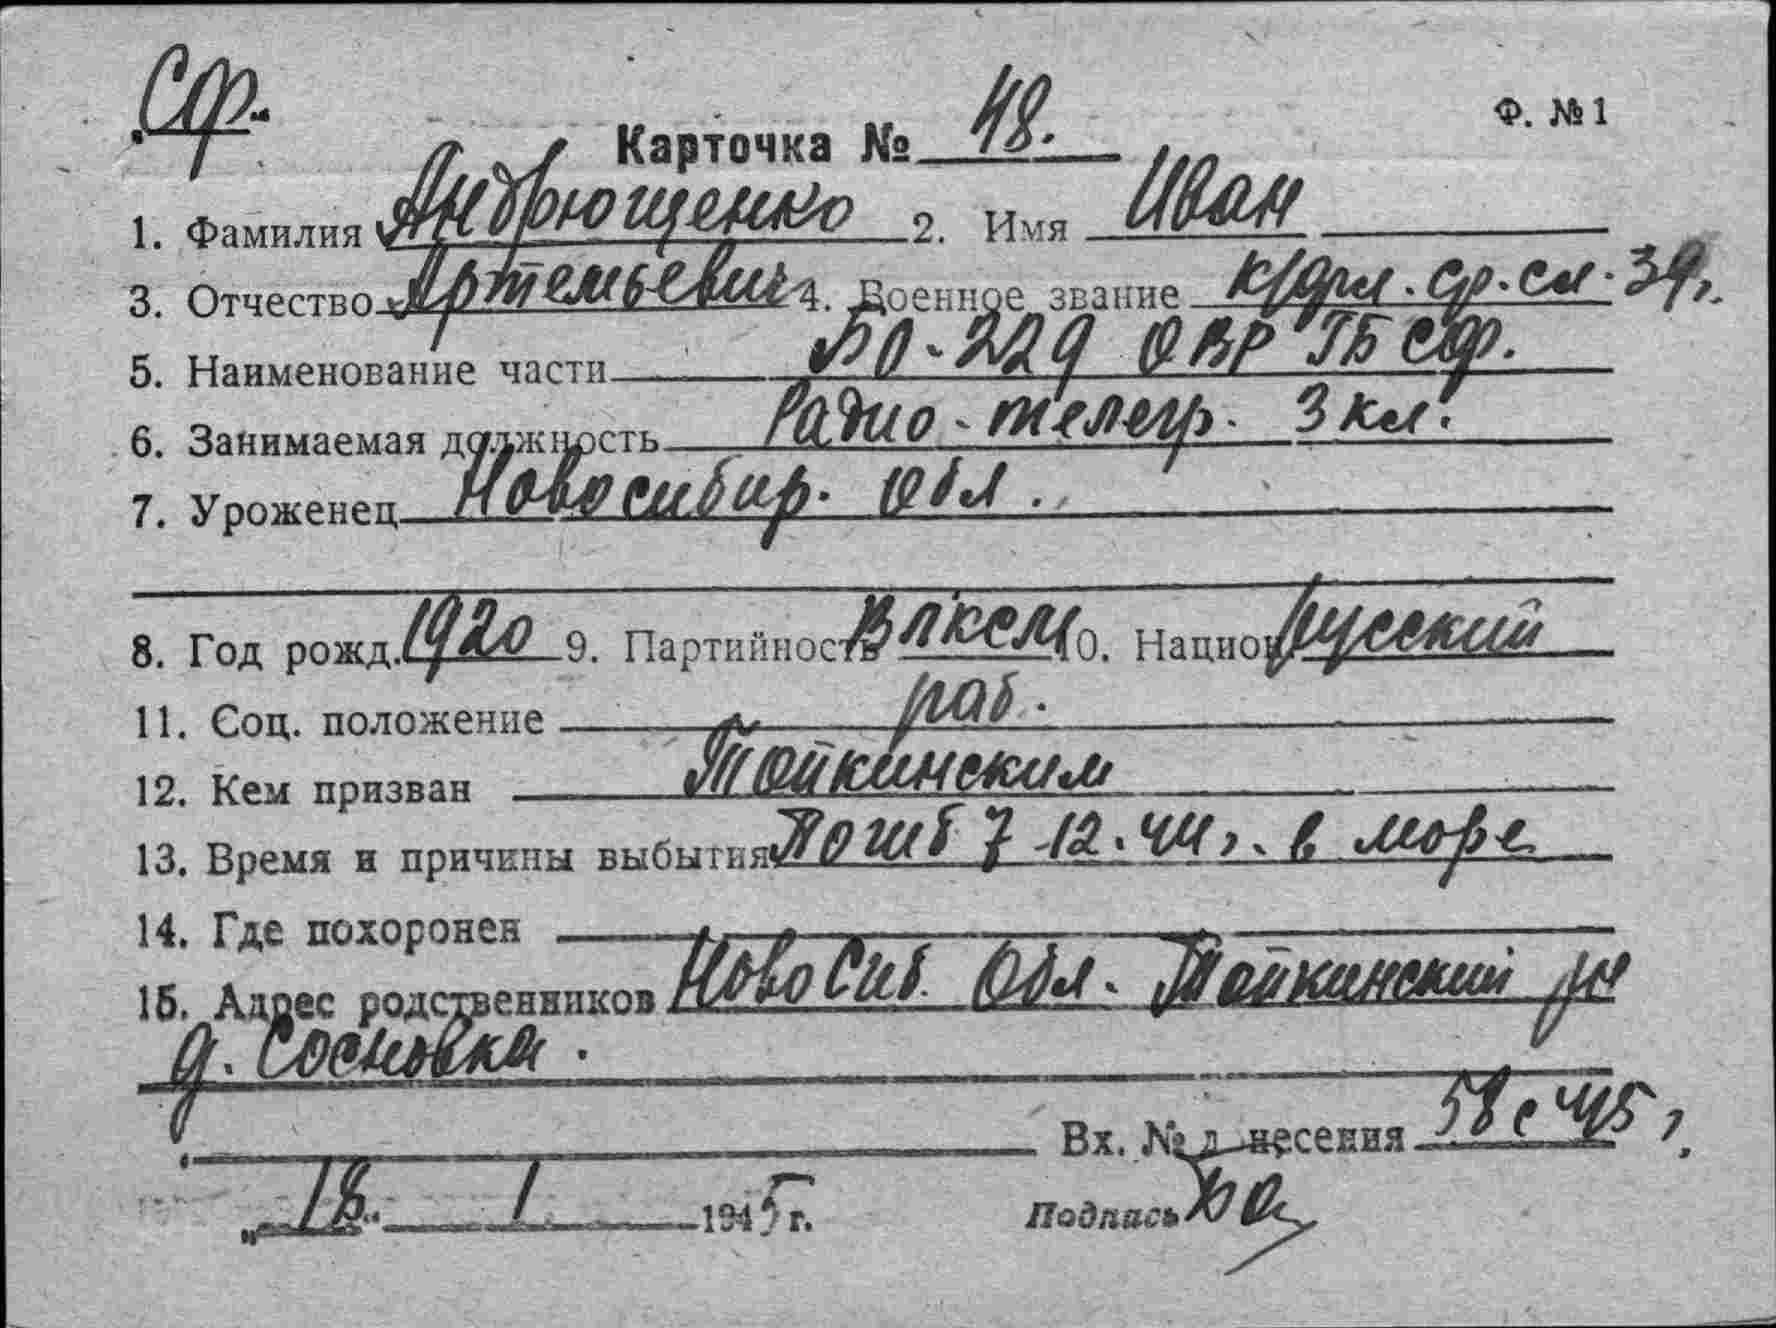 СФ.
Ф. №1
Карточка № 48.
1. Фамилия Андрющенко 2. Имя Иван
3. Отчество Артемьевич 4. Военное звание к/фл. ср. сл. 39 г.
5. Наименование части БО-229 ОВР ГБ СФ.
6. Занимаемая должность Радио-телегр. 3 кл.
7. Уроженец Новосибир. обл.
8. Год рожд. 1920 9. Партийность ВЛКСМ 10. Национ. Русский
11. Соц. положение раб.
12. Кем призван Топкинским
13. Время и причины выбытия Погиб 7-12.44 г. в море
14. Где похоронен
15. Адрес родственников Новосиб. Обл. Топкинский рн
д. Сосновка.
Вх. № д несения 58с 45 г.
„18." 1 1945 г. Подпись